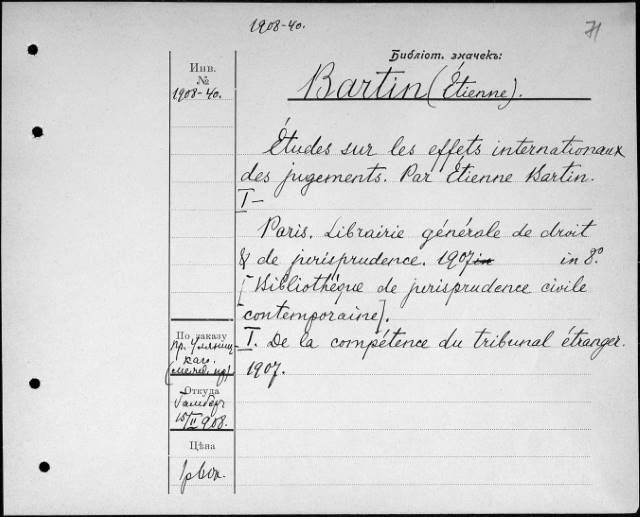 1908-40.
71
Библіот. значекъ:
Инв.
№
1908-40.
Bartin (Étienne).
Études sur les effets internationaux
des jugements. Par Étienne Bartin.
I-
Paris. Librairie générale de droit
& de jurisprudence. 1907 in 8º
[Bibliothèque de jurisprudence civile
contemporaine].
I. De la compétence du tribunal étranger.
1907.
По заказу
пр. Уляниц-
каго.
Откуда
15/II 908.
Цѣна